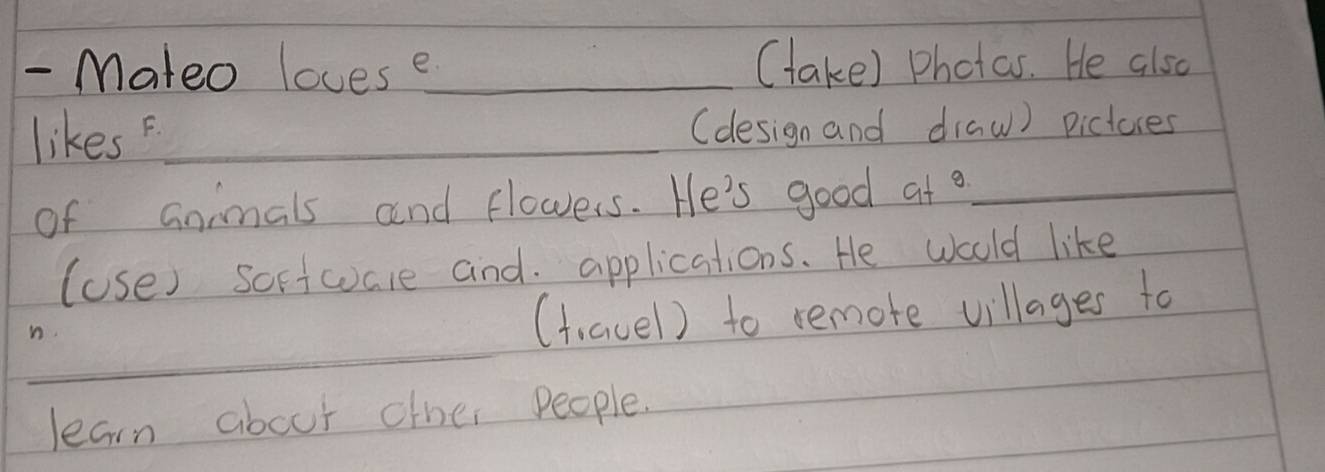 - Mateo loves e. ____________ (take) photos. He also
likes F. ____________ (design and draw) pictures
of animals and flowers. He's good at g. ____________
(use) software and. applications. He would like
h. ____________ (travel) to remote villages to
learn about other people.